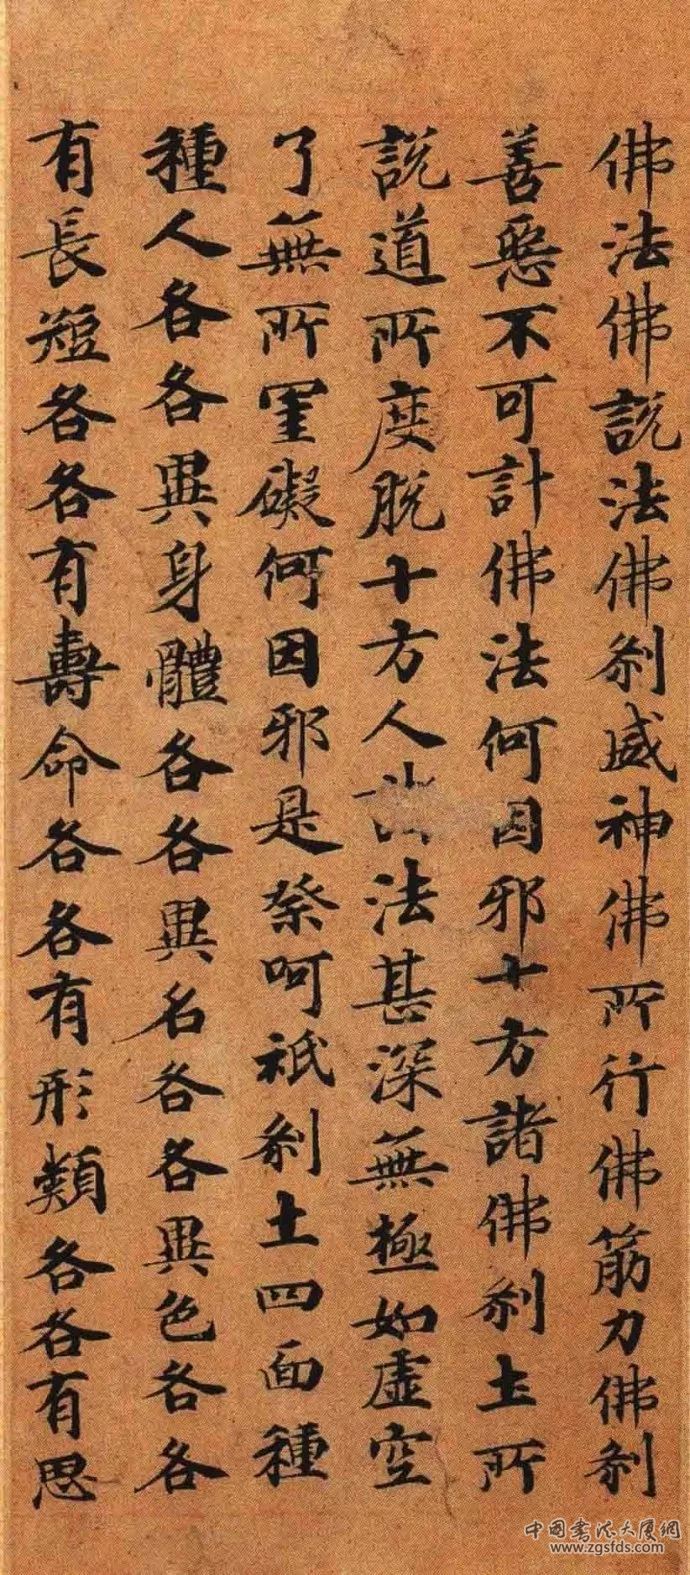 佛法佛説法佛刹威神佛所行佛筋力佛刹
善惡不可計佛法何因邪十方諸佛刹土所
説道所度脱十方人法甚深無極如虚空
了無所罣礙何因邪是祭呵祇刹土四面種
種人各各異身體各各異名各各異色各各
有長短各各有壽命各各有形類各各有思
中國書法大厦網
www.zgsfds.com